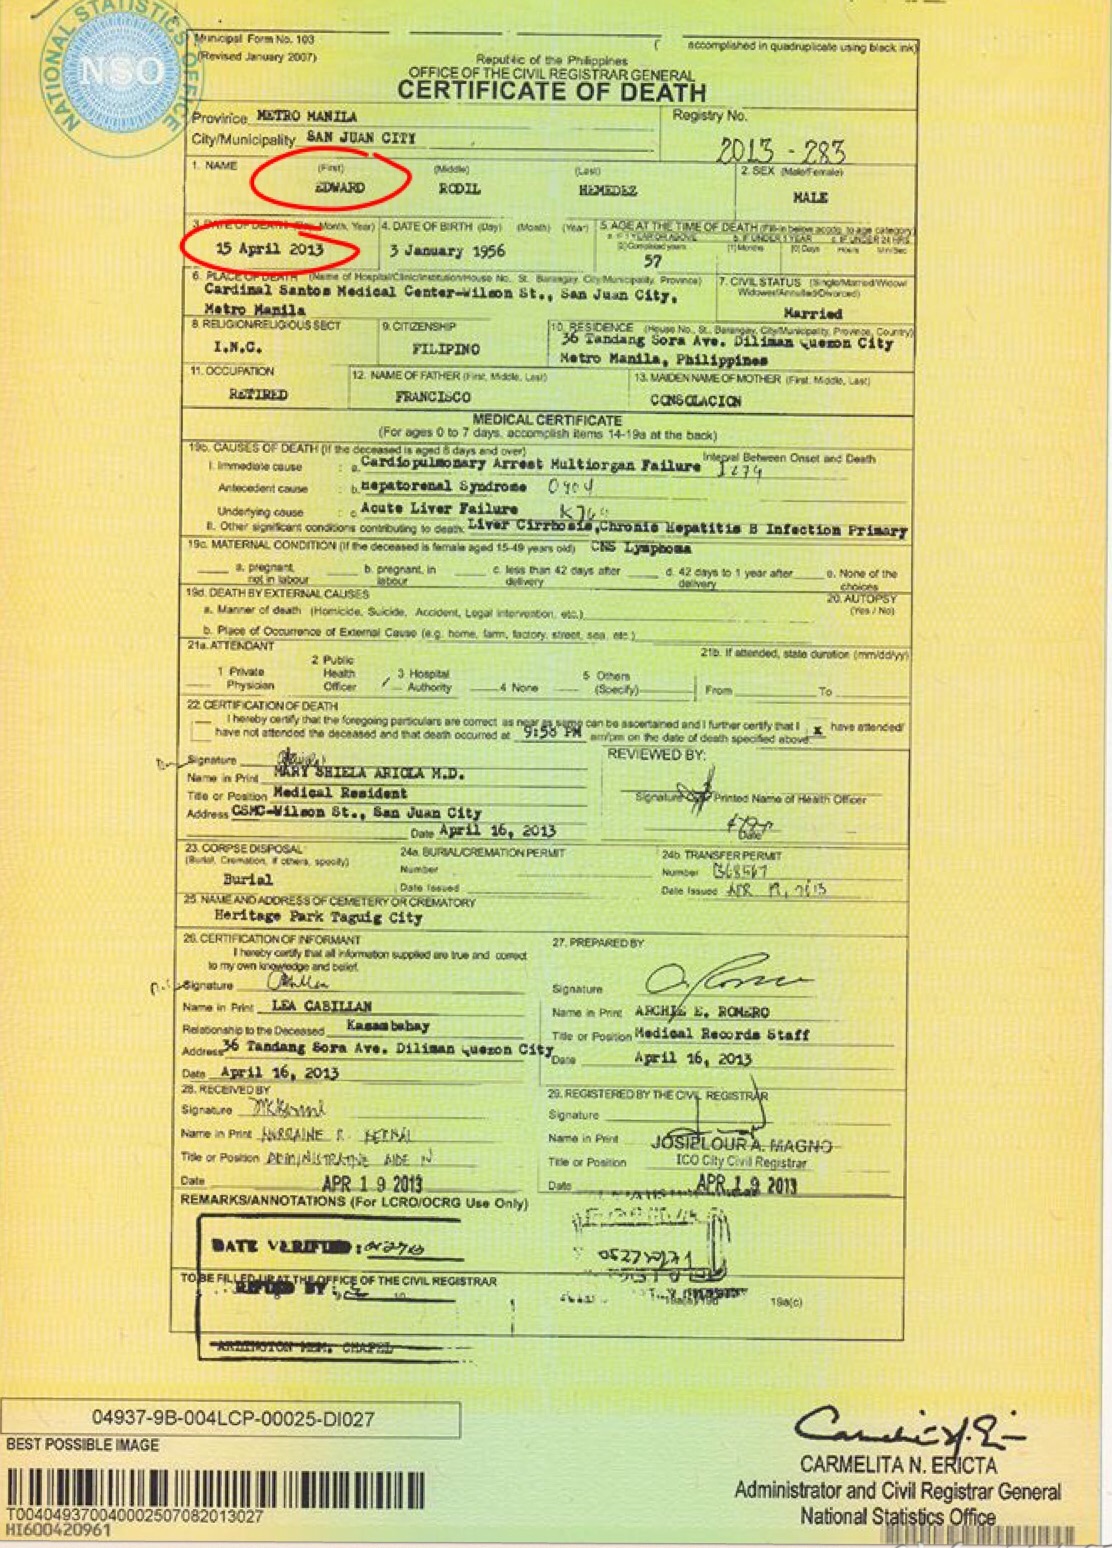 NATIONAL STATISTICS OFFICE
NSO
Municipal Form No. 103
(Revised January 2007)
accomplished in quadruplicate using black ink)
Republic of the Philippines
OFFICE OF THE CIVIL REGISTRAR GENERAL
CERTIFICATE OF DEATH
Province METRO MANILA
Registry No.
City/Municipality SAN JUAN CITY
2013 - 283
1. NAME (First) (Middle) (Last) 2. SEX (Male/Female)
EDWARD RODIL HEMEDEZ MALE
3. DATE OF DEATH (Day, Month, Year) 4. DATE OF BIRTH (Day) (Month) (Year) 5. AGE AT THE TIME OF DEATH (Fill-in below accdg. to age category)
a. IF 1 YEAR OR ABOVE b. IF UNDER 1 YEAR c. IF UNDER 24 HRS
[2] Completed years [1] Months [0] Days Hours Min/Sec
15 April 2013 3 January 1956 57
6. PLACE OF DEATH (Name of Hospital/Clinic/Institution/House No. St. Barangay, City/Municipality, Province) 7. CIVIL STATUS (Single/Married/Widow/
Widower/Annulled/Divorced)
Cardinal Santos Medical Center-Wilson St., San Juan City,
Metro Manila Married
8. RELIGION/RELIGIOUS SECT 9. CITIZENSHIP 10. RESIDENCE (House No., St., Barangay, City/Municipality, Province, Country)
36 Tandang Sora Ave. Diliman Quezon City
I.N.C. FILIPINO Metro Manila, Philippines
11. OCCUPATION 12. NAME OF FATHER (First, Middle, Last) 13. MAIDEN NAME OF MOTHER (First, Middle, Last)
RETIRED FRANCISCO CONSOLACION
MEDICAL CERTIFICATE
(For ages 0 to 7 days, accomplish items 14-19a at the back)
19b. CAUSES OF DEATH (If the deceased is aged 8 days and over) Interval Between Onset and Death
I. Immediate cause : a. Cardiopulmonary Arrest Multiorgan Failure I279
Antecedent cause : b. Hepatorenal Syndrome
Underlying cause : c. Acute Liver Failure
II. Other significant conditions contributing to death: Liver Cirrhosis, Chronic Hepatitis B Infection Primary
19c. MATERNAL CONDITION (If the deceased is female aged 15-49 years old) CNS Lymphoma
a. pregnant, not in labour b. pregnant, in labour c. less than 42 days after delivery d. 42 days to 1 year after delivery e. None of the choices
19d. DEATH BY EXTERNAL CAUSES 20. AUTOPSY
(Yes / No)
a. Manner of death (Homicide, Suicide, Accident, Legal intervention, etc.)
b. Place of Occurrence of External Cause (e.g. home, farm, factory, street, sea, etc.)
21a. ATTENDANT 21b. If attended, state duration (mm/dd/yy)
1 Private Physician 2 Public Health Officer 3 Hospital Authority 4 None 5 Others (Specify) From To
22. CERTIFICATION OF DEATH
I hereby certify that the foregoing particulars are correct as near as same can be ascertained and I further certify that I x have attended/
have not attended the deceased and that death occurred at 9:58 PM am/pm on the date of death specified above.
Signature REVIEWED BY:
Name in Print MARY SHIELA ARIOLA M.D.
Title or Position Medical Resident Signature Over Printed Name of Health Officer
Address CSMC-Wilson St., San Juan City
Date April 16, 2013 Date
23. CORPSE DISPOSAL 24a. BURIAL/CREMATION PERMIT 24b. TRANSFER PERMIT
(Burial, Cremation, if others, specify) Number Number
Burial Date Issued Date Issued APR 19, 2013
25. NAME AND ADDRESS OF CEMETERY OR CREMATORY
Heritage Park Taguig City
26. CERTIFICATION OF INFORMANT 27. PREPARED BY
I hereby certify that all information supplied are true and correct
to my own knowledge and belief.
Signature Signature
Name in Print LEA CABILLAN Name in Print ARCHIE E. ROMERO
Relationship to the Deceased Kasambahay Title or Position Medical Records Staff
Address 36 Tandang Sora Ave. Diliman Quezon City
Date April 16, 2013
Date April 16, 2013
28. RECEIVED BY 29. REGISTERED BY THE CIVIL REGISTRAR
Signature Signature
Name in Print Name in Print JOSIELOUR A. MAGNO
Title or Position ADMINISTRATIVE AIDE IV Title or Position ICO City Civil Registrar
Date APR 19 2013 Date APR 19 2013
REMARKS/ANNOTATIONS (For LCRO/OCRG Use Only)
DATE VERIFIED:
TO BE FILLED UP AT THE OFFICE OF THE CIVIL REGISTRAR
BY:
19a(a)/19b 19a(c)
ARLINGTON MEM. CHAPEL
04937-9B-004LCP-00025-DI027
BEST POSSIBLE IMAGE
T004049370040002507082013027
HI600420961
CARMELITA N. ERICTA
Administrator and Civil Registrar General
National Statistics Office